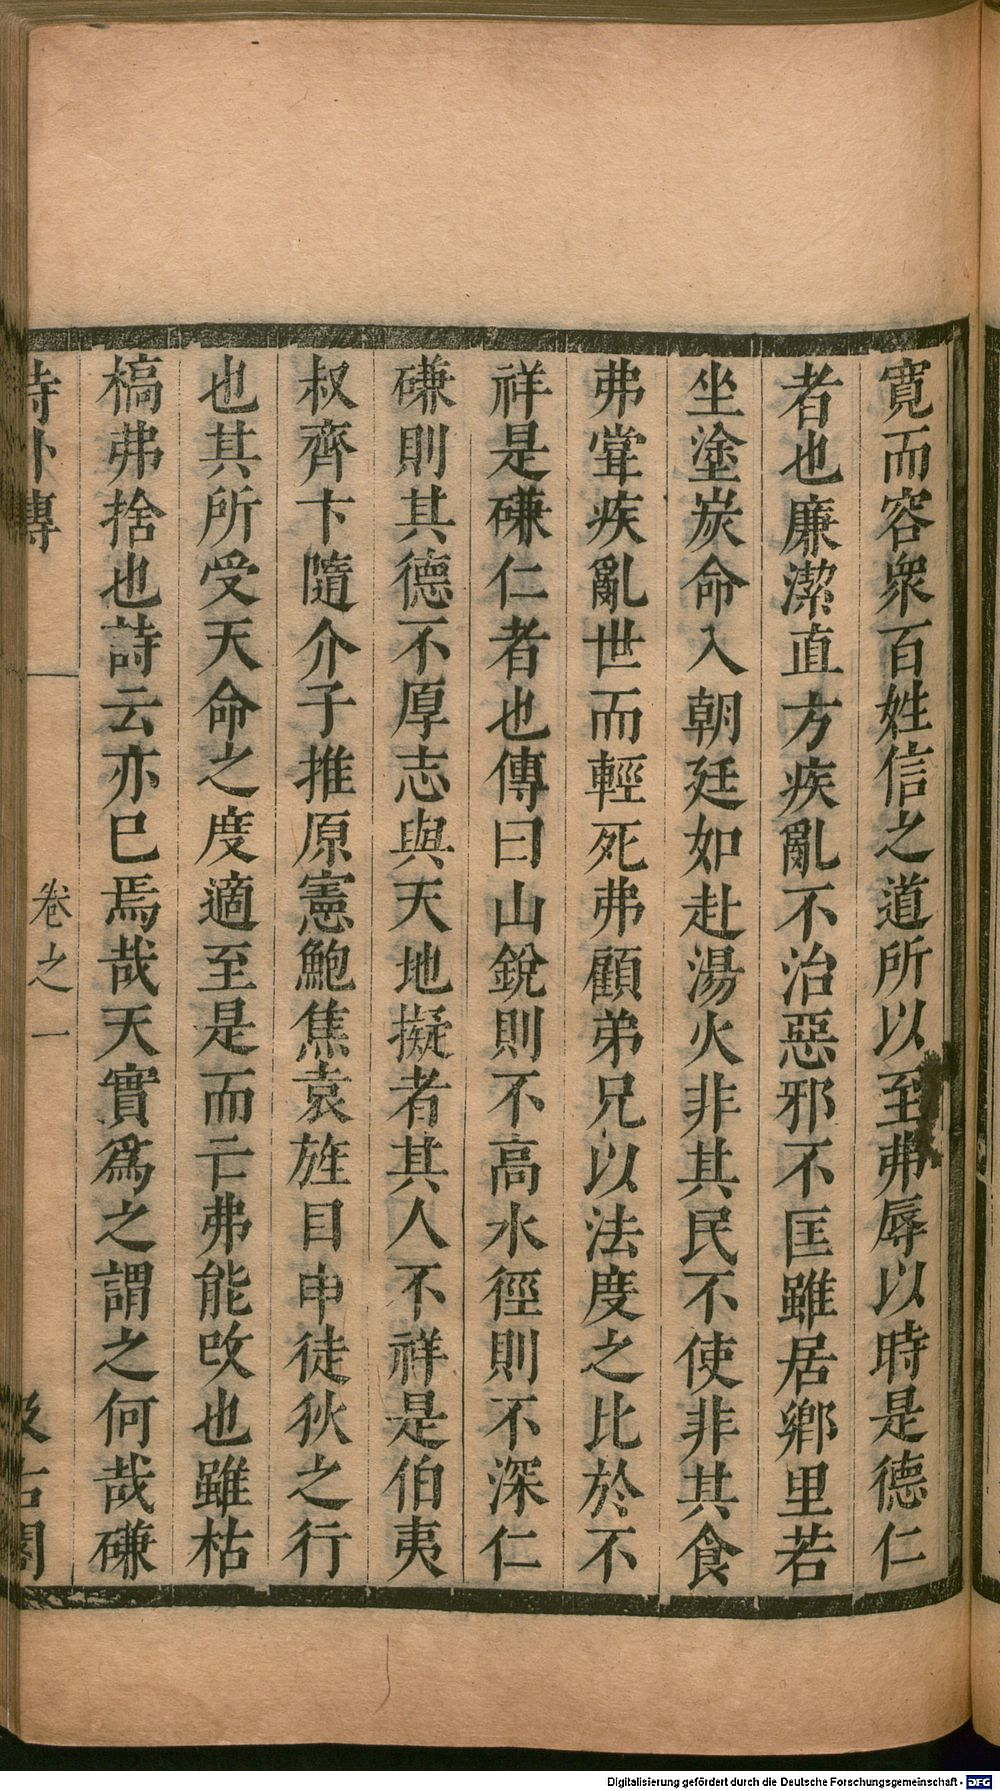 寛而容衆百姓信之道所以至弗辱以時是德仁
者也廉潔直方疾亂不治惡邪不匡雖居鄉里若
坐塗炭命入朝廷如赴湯火非其民不使非其食
弗甞疾亂世而輕死弗顧弟兄以法度之比於不
祥是磏仁者也傳曰山銳則不高水徑則不深仁
磏則其德不厚志與天地擬者其人不祥是伯夷
叔齊卞隨介子推原憲鮑焦袁旌目申徒狄之行
也其所受天命之度適至是而亡弗能改也雖枯
槁弗捨也詩云亦巳焉哉天實爲之謂之何哉磏
詩外傳 卷之一 汲古閣
Digitalisierung gefördert durch die Deutsche Forschungsgemeinschaft - DFG